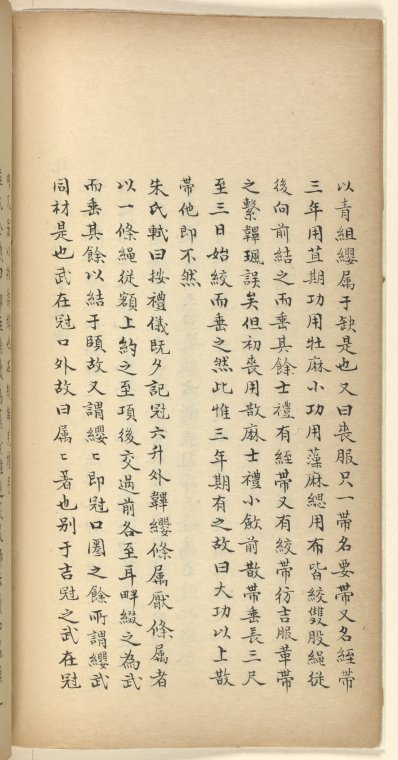 以青組纓属于缺是也又曰喪服只一帶名要帶又名絰帶
三年用苴期功用牡麻小功用藻麻緦用布皆絞雙股繩從
後向前結之而垂其餘士禮有絰帶又有絞帶彷吉服革帶
之繫韠珮誤矣但初喪用散麻士禮小歛前散帶垂長三尺
至三日始絞而垂之然此惟三年期有之故曰大功以上散
帶他即不然
朱氏軾曰按禮儀既夕記冠六升外韠纓條属厭條属者
以一條繩從額上約之至項後交過前各至耳畔綴之為武
而垂其餘以結于頤故又謂纓〻即冠口圏之餘所謂纓武
同材是也武在冠口外故曰属〻著也別于吉冠之武在冠